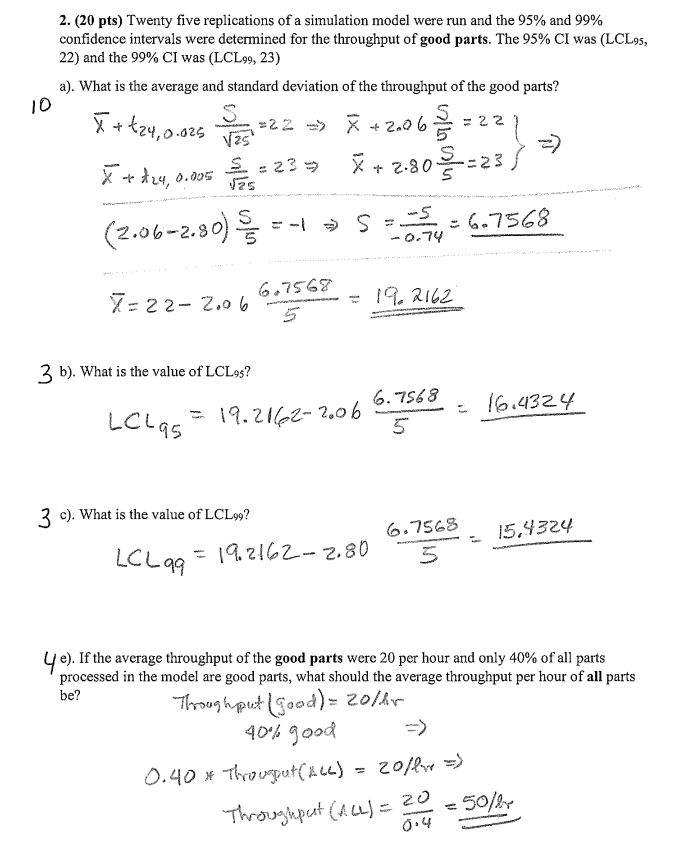 2. (20 pts) Twenty five replications of a simulation model were run and the 95% and 99%
confidence intervals were determined for the throughput of good parts. The 95% CI was (LCL95,
22) and the 99% CI was (LCL99, 23)
a). What is the average and standard deviation of the throughput of the good parts?
10
X̄ + t24,0.025 S/√25 = 22 ⇒ X̄ + 2.06 S/5 = 22 } ⇒
X̄ + t24,0.005 S/√25 = 23 ⇒ X̄ + 2.80 S/5 = 23
(2.06-2.80) S/5 = -1 ⇒ S = -5/-0.74 = 6.7568
X̄ = 22 - 2.06 6.7568/5 = 19.2162
3 b). What is the value of LCL95?
LCL95 = 19.2162 - 2.06 6.7568/5 = 16.4324
3 c). What is the value of LCL99?
LCL99 = 19.2162 - 2.80 6.7568/5 = 15.4324
4 e). If the average throughput of the good parts were 20 per hour and only 40% of all parts
processed in the model are good parts, what should the average throughput per hour of all parts
be?
Throughput(good) = 20/hr
40% good ⇒
0.40 * Througput(ALL) = 20/hr ⇒
Throughput (ALL) = 20/0.4 = 50/hr